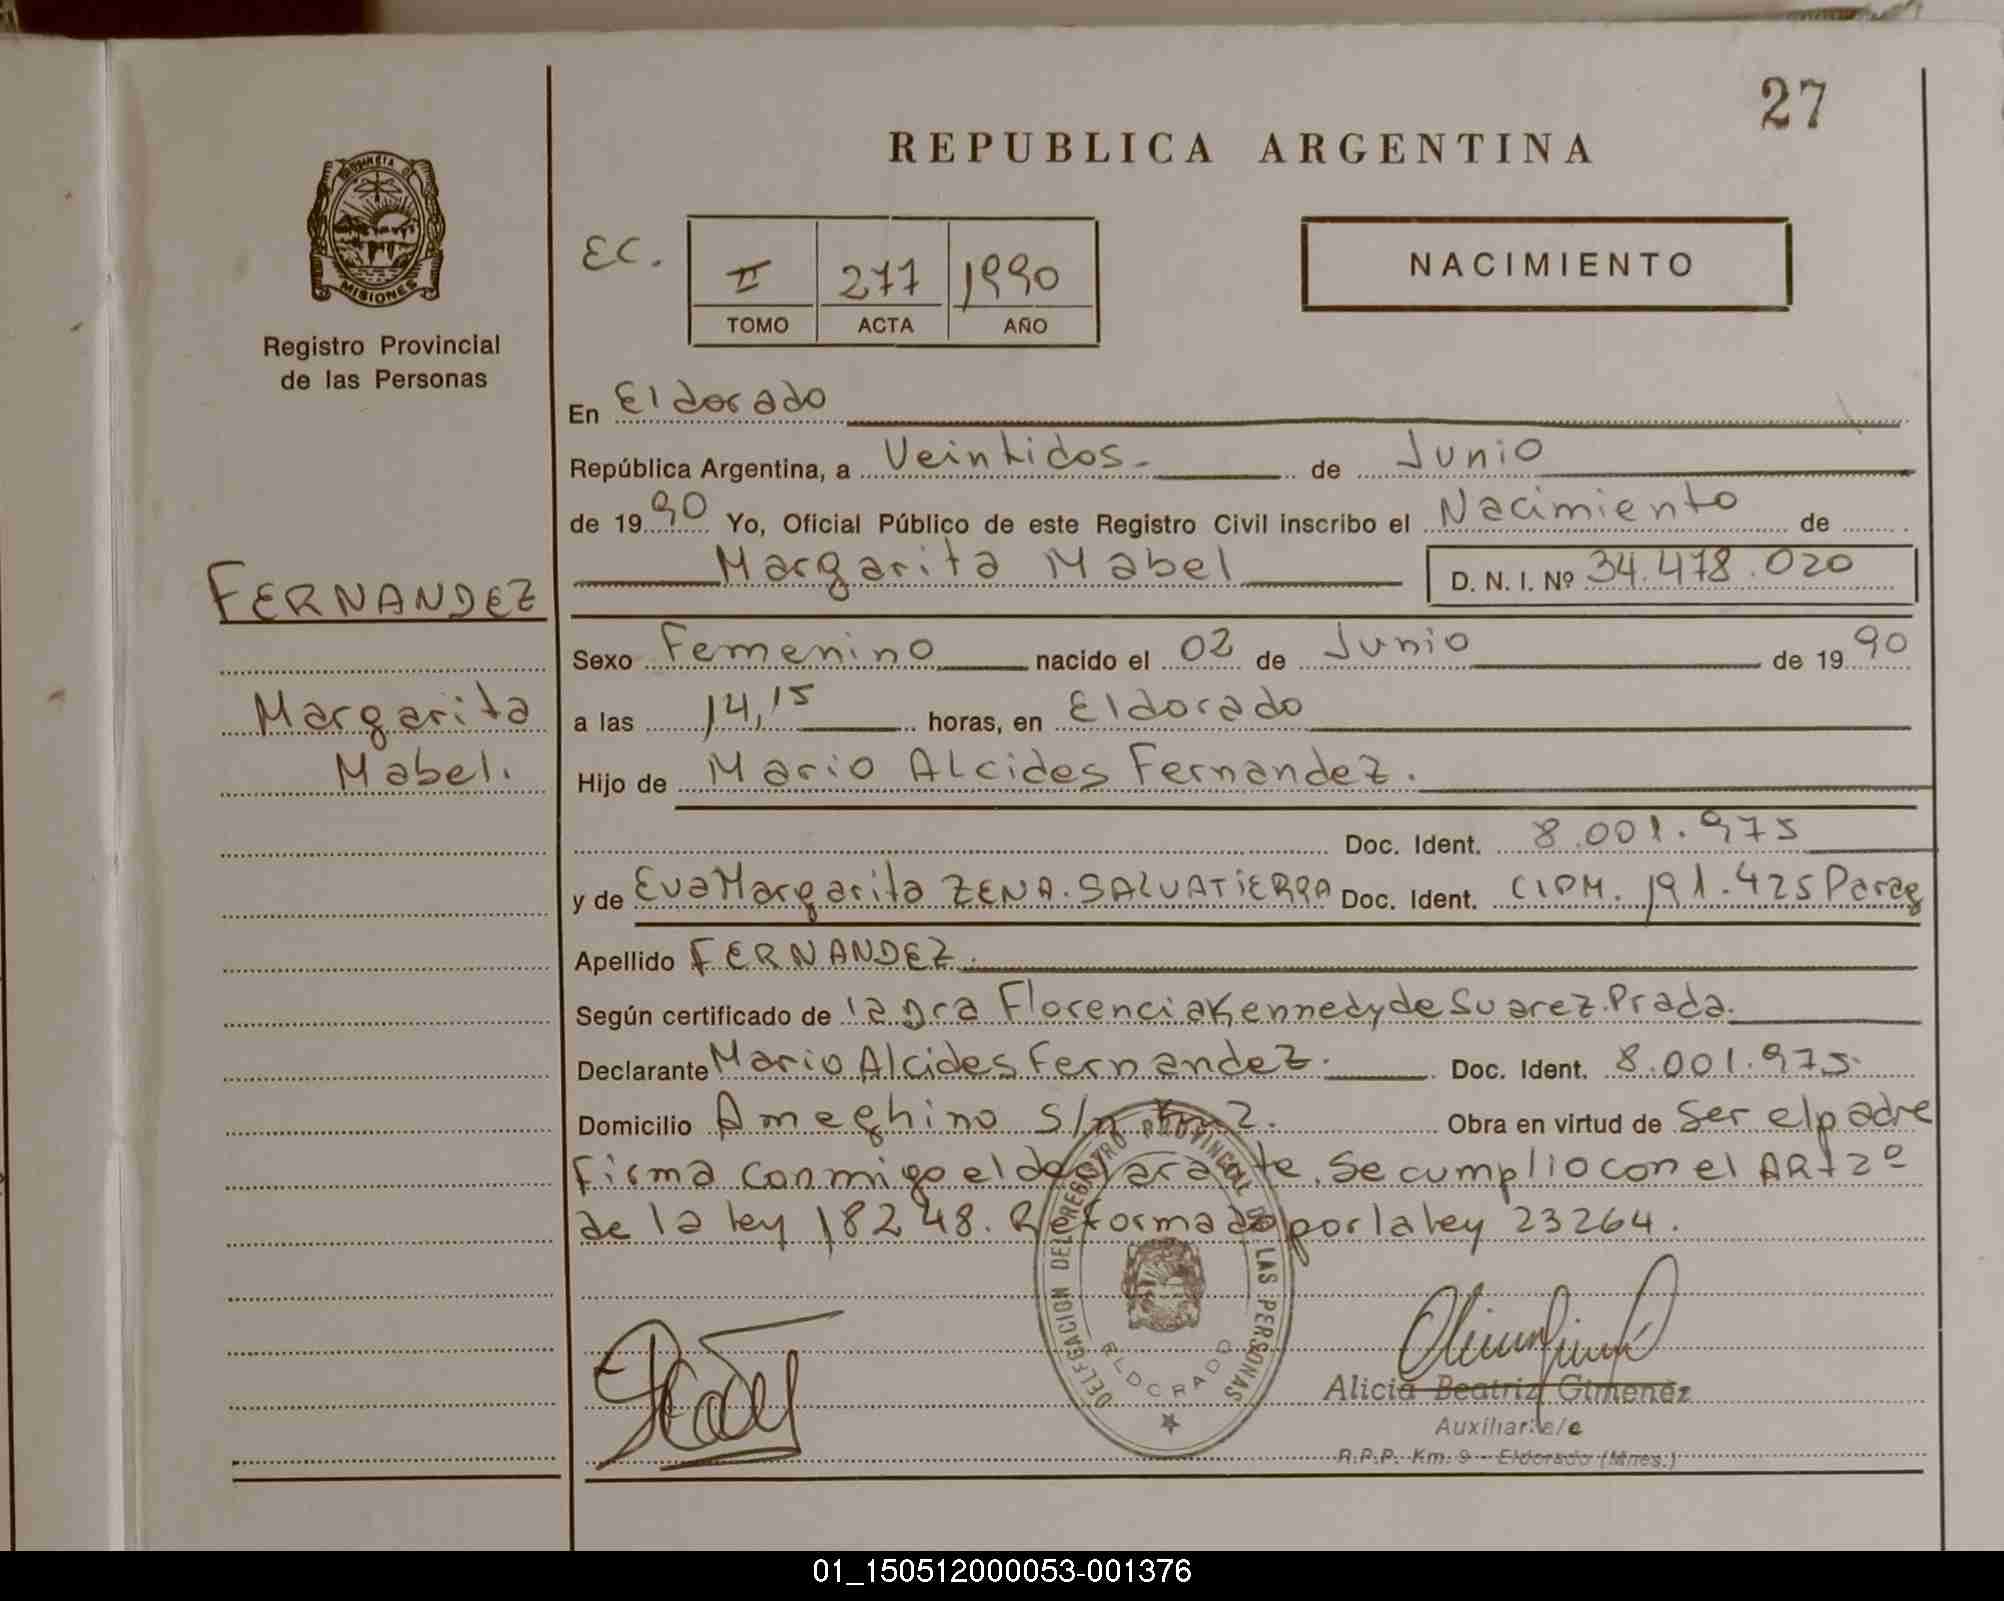 27
REPUBLICA ARGENTINA
PROVINCIA
MISIONES
Registro Provincial
de las Personas
EC.
II 277 1990
TOMO ACTA AÑO
NACIMIENTO
En Eldorado
República Argentina, a Veintidos.- de Junio
de 1990 Yo, Oficial Público de este Registro Civil inscribo el Nacimiento de
Margarita Mabel D. N. I. Nº 34.478.020
FERNANDEZ
Margarita
Mabel.
Sexo Femenino nacido el 02 de Junio de 1990
a las 14,15 horas, en Eldorado
Hijo de Mario Alcides Fernandez.
Doc. Ident. 8.001.975
y de Eva Margarita ZENA.SALVATIERRA Doc. Ident. CIPM. 191.425 Parag
Apellido FERNANDEZ.
Según certificado de la Dra Florencia Kennedy de Suarez.Prada.
Declarante Mario Alcides Fernandez. Doc. Ident. 8.001.975.
Domicilio Ameghino s/n Km 2. Obra en virtud de ser el padre
Firma conmigo el declarante. Se cumplio con el ARt 2º
de la ley 18248. Reformado por la ley 23264.
DELEGACION DEL REGISTRO PROVINCIAL DE LAS PERSONAS
ELDORADO
Alicia Beatriz Gimenez
Auxiliar a/c
R.P.P. Km. 9 - Eldorado (Mnes.)
01_150512000053-001376